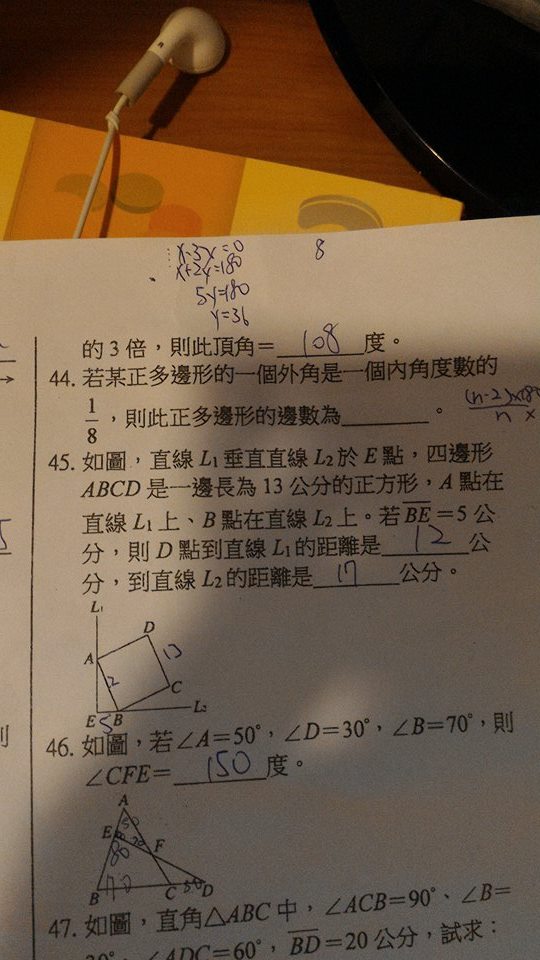 x-3y=0
8
x+2y=180
5y=180
y=36
的3倍，則此頂角=108度。
44. 若某正多邊形的一個外角是一個內角度數的
1/8，則此正多邊形的邊數為______。
(n-2)×180
n ×
45. 如圖，直線 L1 垂直直線 L2 於 E 點，四邊形
ABCD 是一邊長為 13 公分的正方形，A 點在
直線 L1 上、B 點在直線 L2 上。若 BE=5 公
分，則 D 點到直線 L1 的距離是12公
分，到直線 L2 的距離是17公分。
L1
D
A
13
12
C
E 5 B
L2
46. 如圖，若∠A=50°，∠D=30°，∠B=70°，則
∠CFE=150度。
A
50
E
F
80
B 70 C 30 D
47. 如圖，直角△ABC 中，∠ACB=90°、∠B=
30°，∠ADC=60°，BD=20 公分，試求：